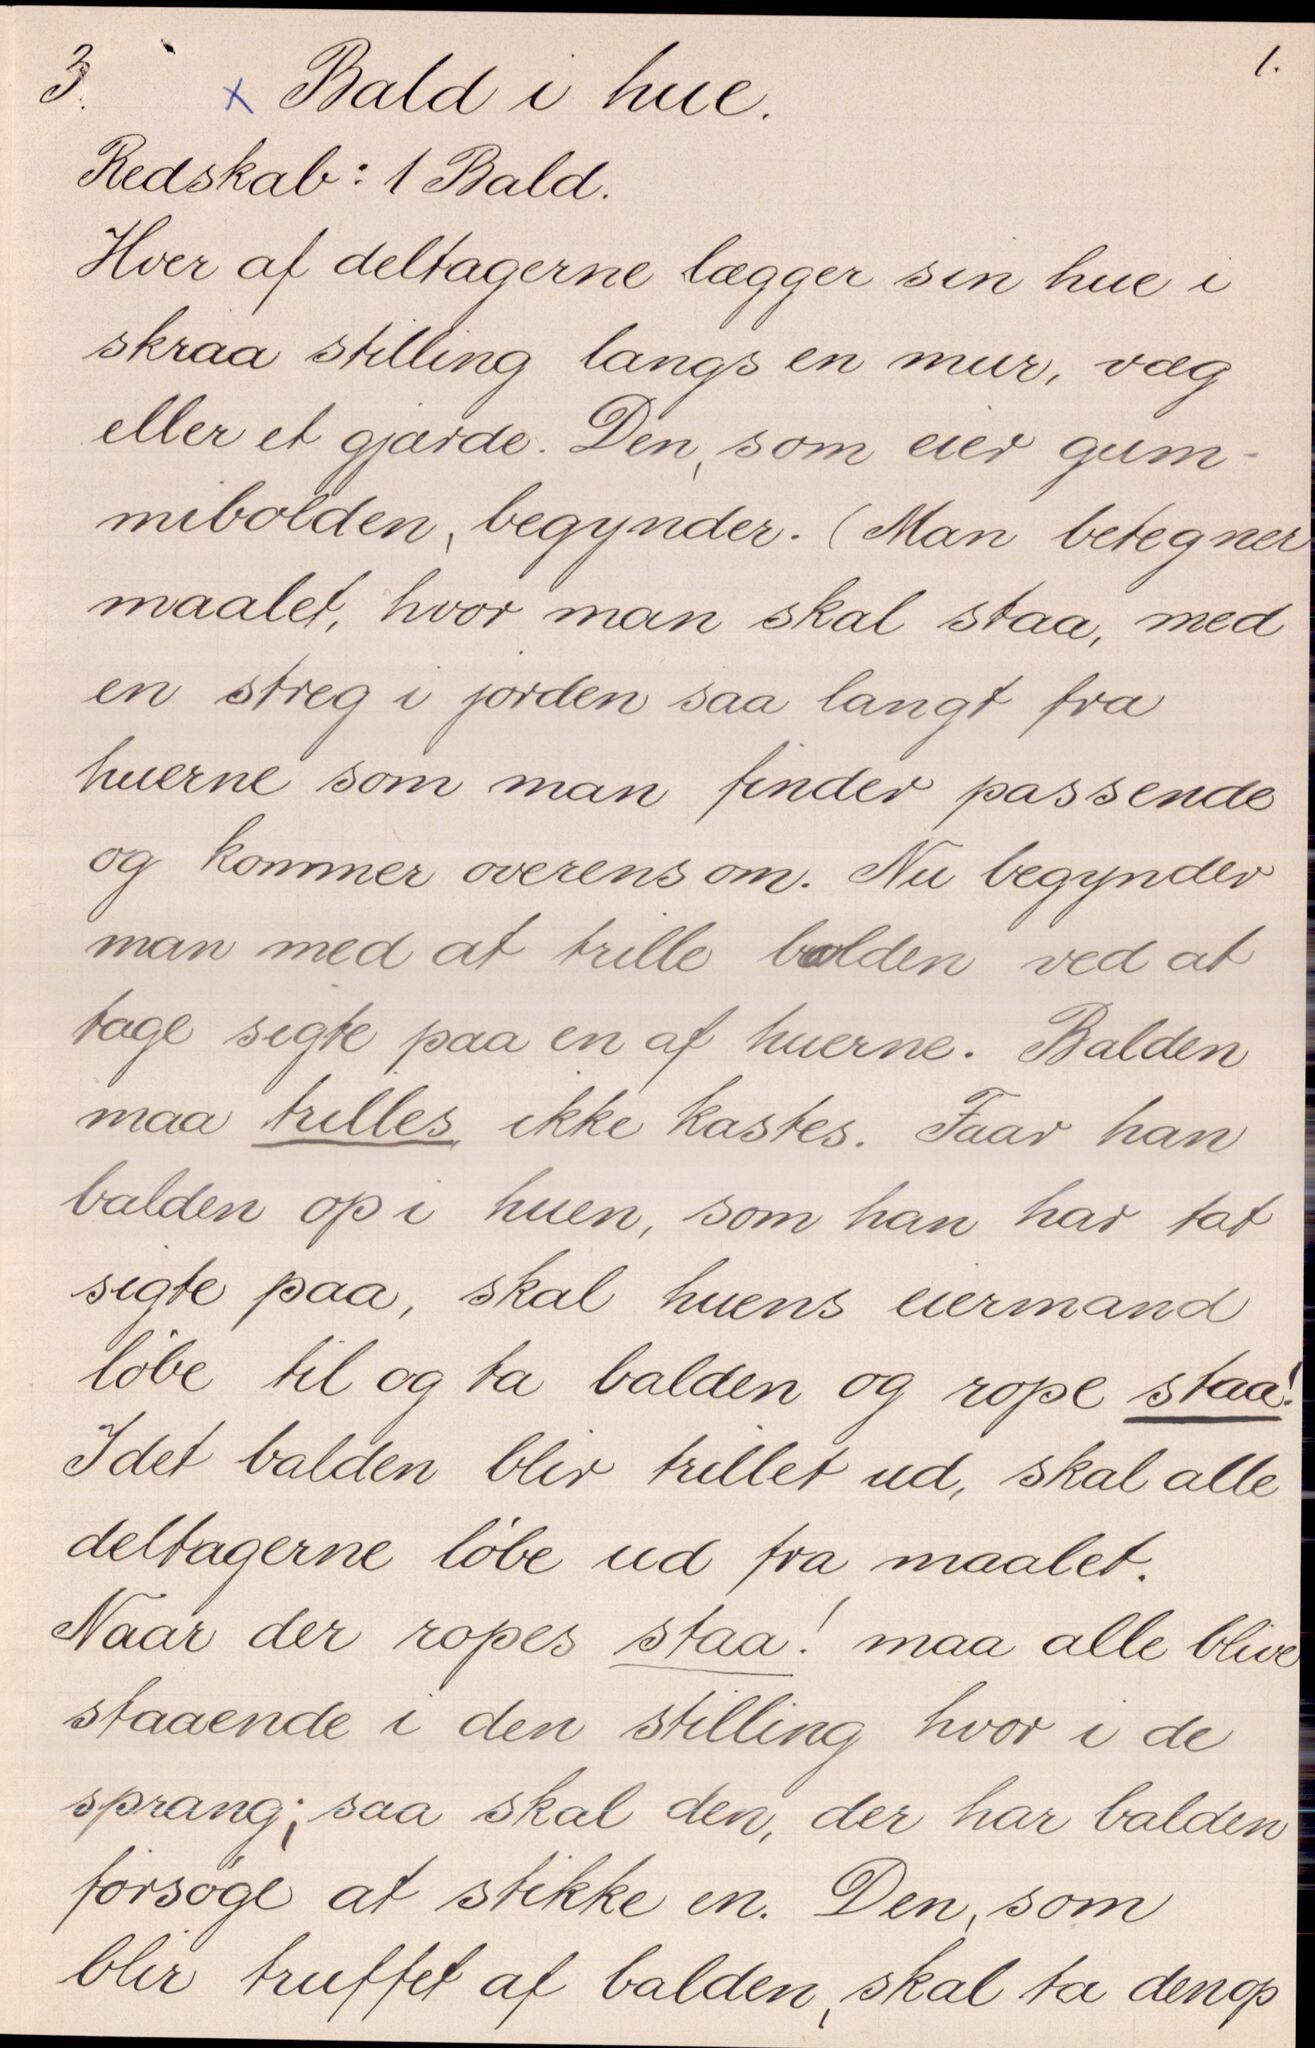 3. x Bald i hue. 1.
Redskab: 1 Bald.
Hver af deltagerne lægger sin hue i
skraa stilling langs en mur, væg
eller et gjærde. Den, som eier gum-
mibolden, begynder. (Man betegner
maalet, hvor man skal staa, med
en streg i jorden saa langt fra
huerne som man finder passende
og kommer overens om. Nu begynder
man med at trille bolden ved at
tage sigte paa en af huerne. Balden
maa trilles, ikke kastes. Faar han
balden op i huen, som han har tat
sigte paa, skal huens eiermand
löbe til og ta balden og rope staa!
Idet balden blir trillet ud, skal alle
deltagerne löbe ud fra maalet.
Naar der ropes staa! maa alle blive
staaende i den stilling hvor i de
sprang; saa skal den, der har balden
forsöge at stikke en. Den, som
blir truffet af balden, skal ta den op